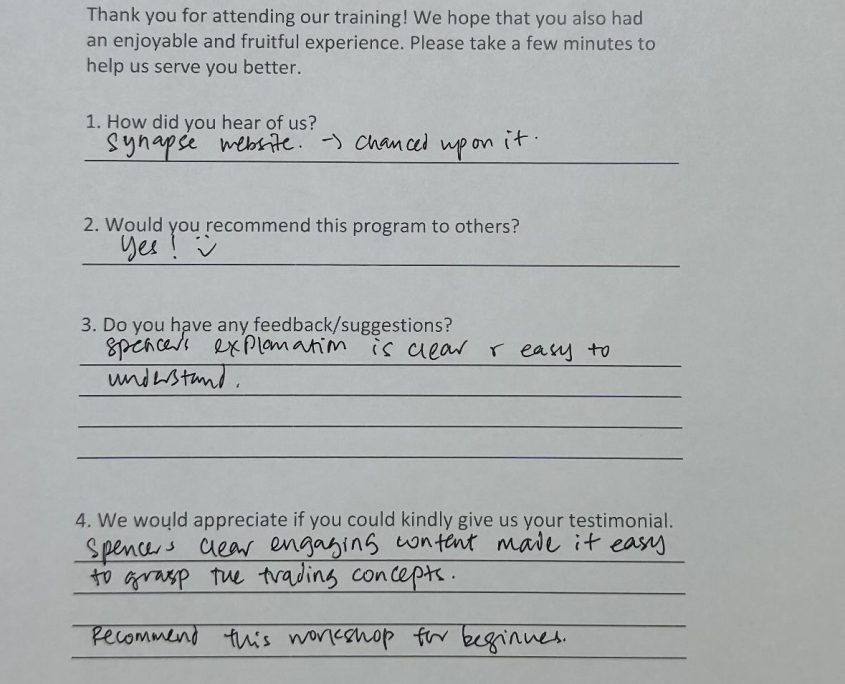 Thank you for attending our training! We hope that you also had
an enjoyable and fruitful experience. Please take a few minutes to
help us serve you better.
1. How did you hear of us?
Synapse website. → chanced upon it.
2. Would you recommend this program to others?
Yes! :)
3. Do you have any feedback/suggestions?
Spencer's explanation is clear & easy to
understand.
4. We would appreciate if you could kindly give us your testimonial.
Spencers clear engaging content made it easy
to grasp the trading concepts.
Recommend this workshop for beginners.